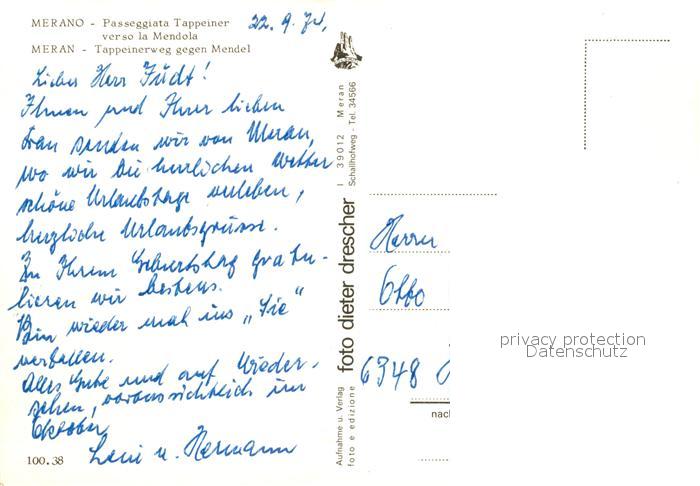 MERANO - Passeggiata Tappeiner
verso la Mendola
MERAN - Tappeinerweg gegen Mendel
22.9.74,
Lieber Herr
Ihnen und Ihrer lieben
Frau senden wir von Meran,
wo wir bei herrlichem Wetter
schöne Urlaubstage verleben,
herzliche Urlaubsgrüsse.
Zu Ihrem Geburtstag gratu-
lieren wir bestens.
Bin wieder mal ins „Sie"
verfallen.
Alles Gute und auf Wieder-
sehen, voraussichtlich im
Oktober
Leni u. Hermann
100.38
Aufnahme u. Verlag
foto e edizione
foto dieter drescher
I 39012 Meran
Schallhofweg - Tel. 34566
Herrn
Otto
6348
nach
privacy protection
Datenschutz